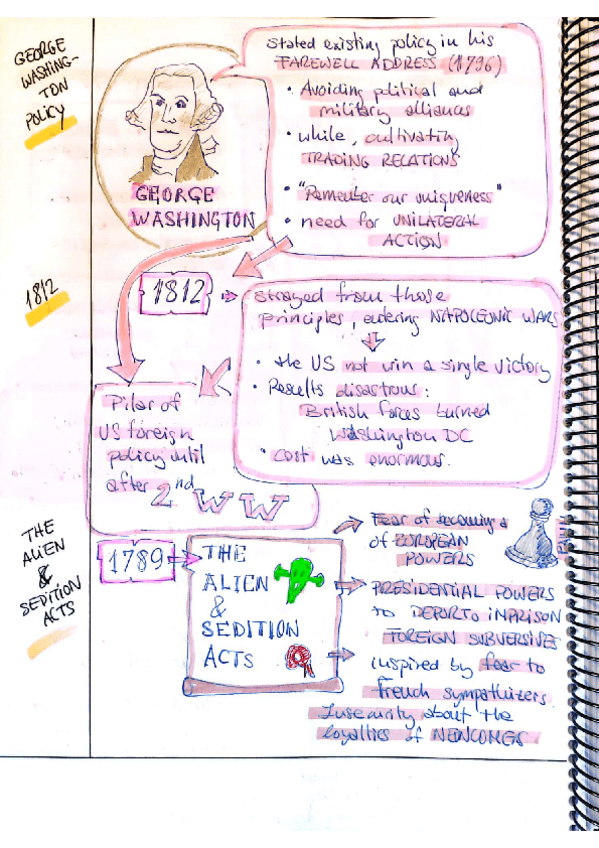 GEORGE
WASHING-
TON
Policy
Stated existing policy in his
FAREWELL ADDRESS (1796)
• Avoiding political and
military alliances
• while, cultivating
TRADING RELATIONS
• "Remember our uniqueness"
• need for UNILATERAL
ACTION
GEORGE
WASHINGTON
1812
1812
strayed from those
principles, entering NAPOLEONIC WARS
• the US not win a single victory
• Results disastrous:
British forces burned
Washington DC
• Cost was enormous.
Pilar of
US foreign
policy until
after 2nd WW
THE
ALIEN
&
SEDITION
ACTS
1789
THE
ALIEN
&
SEDITION
ACTS
Fear of becoming a
of EUROPEAN
POWERS
PAWN
PRESIDENTIAL POWERS
to DEPORT
FOREIGN SUBVERSIVES
inspired by fear to
French sympathizers
Insecurity about the
loyalties of